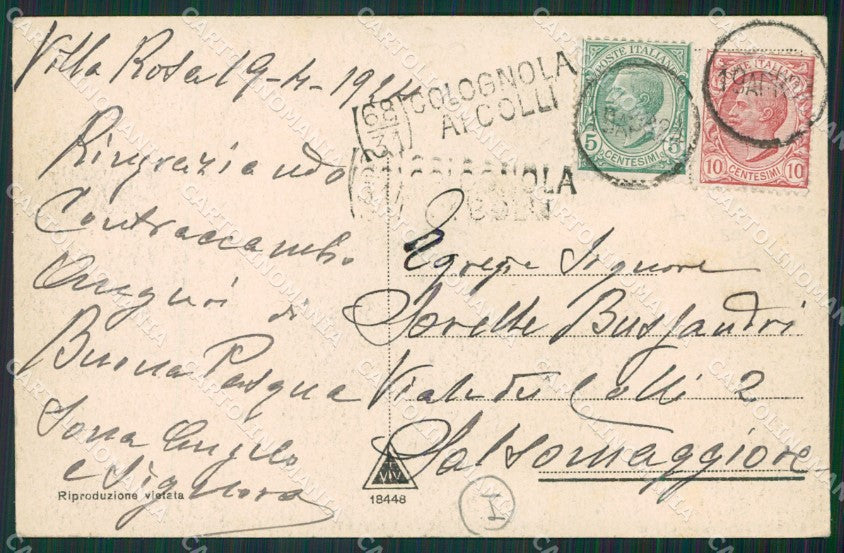 Villa Rosa 19-4-1924
Ringraziando
Contraccambio
Auguri di
Buona Pasqua
Angelo
e Signora
Riproduzione vietata
18448
1
68
COLOGNOLA
AI COLLI
COLOGNOLA
COLLI
POSTE ITALIANE
5 5
CENTESIMI
POSTE ITALIANE
10 10
CENTESIMI
Egregie Signore
Sorelle Busjandri
Viale dei Colli 2
Salsomaggiore
CARTOLINOMANIA